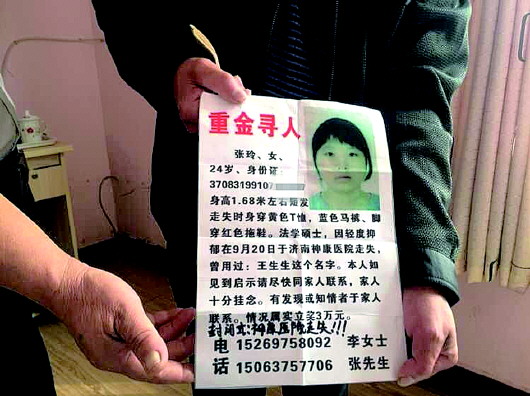 重金寻人
张玲、女、
24岁、身份证:
37083199107
身高1.68米左右短发
走失时身穿黄色T恤，蓝色马裤、脚
穿红色拖鞋。法学硕士，因轻度抑
郁在9月20日于济南神康医院走失，
曾用过：王生生这个名字。本人如
见到启示请尽快同家人联系，家人
十分挂念。有发现或知情者于家人
联系。情况属实立奖3万元。
医院走失!!!
电 15269758092 李女士
话 15063757706 张先生